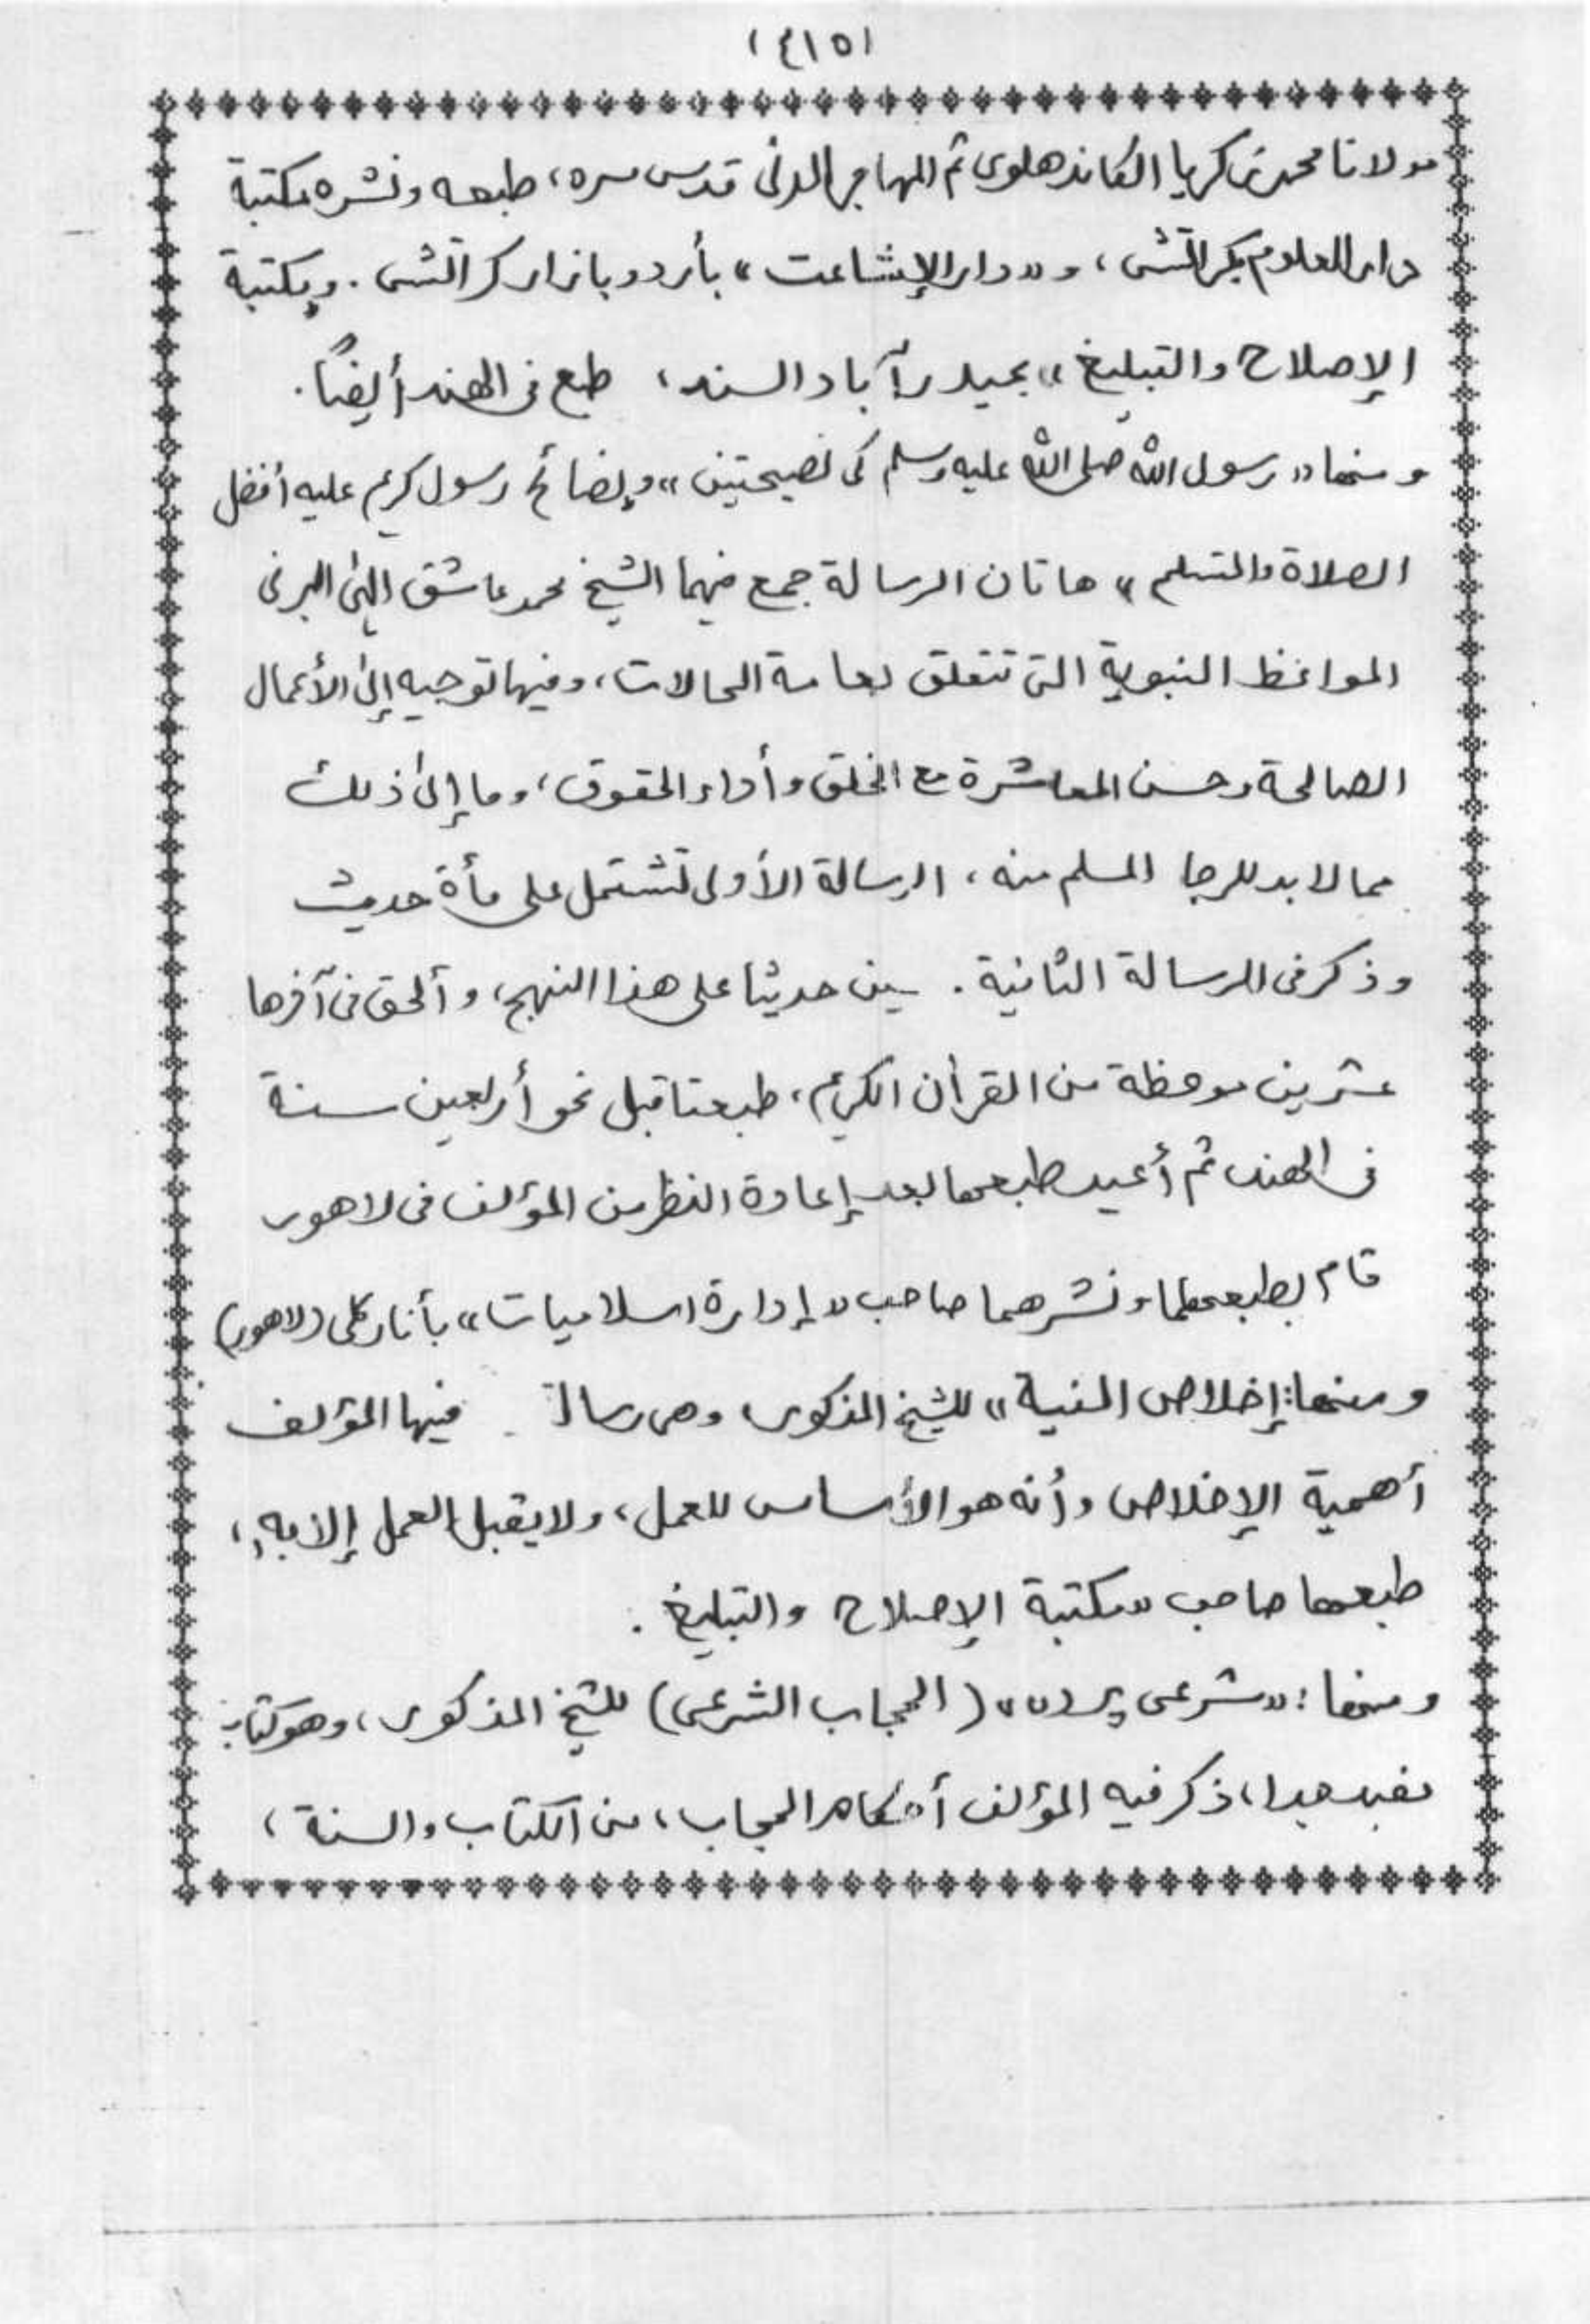 (٤١٥)
مولانا محمد زكريا الكاندهلوى ثم المهاجر المدنى قدس سره، طبعه ونشره مكتبة
دار العلوم بكراتشى، و«دار الإشاعت» بأردو بازار كراتشى. ومكتبة
الإصلاح والتبليغ» بحيدرآباد السند، طبع فى الهند أيضًا.
ومنها «رسول الله صلى الله عليه وسلم كى نصيحتين» و نصائح رسول كريم عليه أفضل
الصلاة والتسليم» هاتان الرسالة جمع فيهما الشيخ محمد عاشق إلٰهى البرنى
المواعظ النبوية التى تتعلق بعامة الحالات، وفيها توجيه إلى الأعمال
الصالحة وحسن المعاشرة مع الخلق وأداء الحقوق، وما إلى ذلك
مما لا بد للرجل المسلم منه، الرسالة الأولى تشتمل على مأة حديث
وذكر فى الرسالة الثانية. حديثا على هذا النهج، وألحق فى آخرها
عشرين موعظة من القرأن الكريم، طبعتا قبل نحو أربعين سنة
فى الهند، ثم أعيد طبعهما بعد إعادة النظر من المؤلف فى لاهور
قام بطبعهما ونشرهما صاحب «إدارة اسلاميات» بأناركلى (لاهور)
ومنها: إخلاص النية» للشيخ المذكور، وهى رسالة فيها المؤلف
أهمية الإخلاص وأنه هو الأساس للعمل، ولا يقبل العمل إلا به،
طبعها صاحب «مكتبة الإصلاح والتبليغ.
ومنها: «شرعى پرده» (الحجاب الشرعى) للشيخ المذكور، وهو كتاب
مفيد جدا، ذكر فيه المؤلف أحكام الحجاب، من الكتاب والسنة،